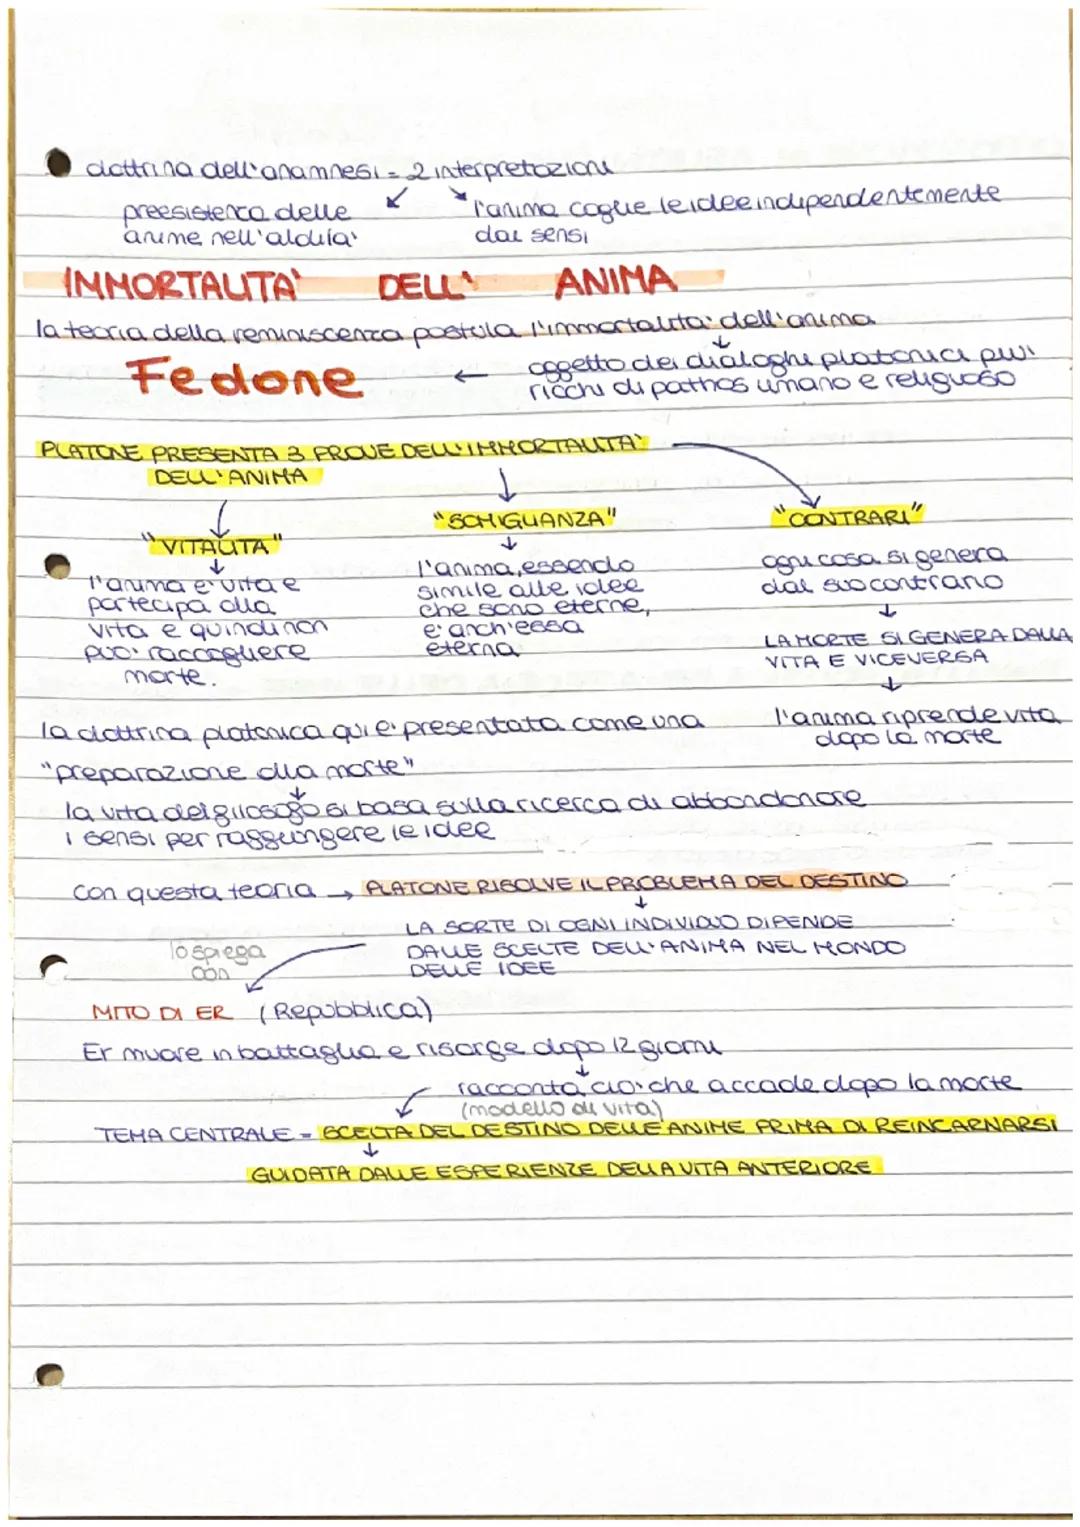 dottrina dell'anamnesi = 2 interpretazioni
preesistenza delle
anime nell'aldilà
l'anima coglie le idee indipendentemente
dai sensi
IMMORTALITA' DELL' ANIMA
la teoria della reminiscenza postula l'immortalità dell'anima
Fedone ← oggetto dei dialoghi platonici più
ricchi di pathos umano e religioso
PLATONE PRESENTA 3 PROVE DELL'IMMORTALITA'
DELL'ANIMA
"VITALITA"
l'anima e' vita e
partecipa alla
vita e quindi non
puo' raccogliere
morte.
"SOMIGLIANZA"
l'anima, essendo
simile alle idee
che sono eterne,
e' anch'essa
eterna
"CONTRARI"
ogni cosa si genera
dal suo contrario
LA MORTE SI GENERA DALLA
VITA E VICEVERSA
l'anima riprende vita
dopo la morte
la dottrina platonica qui e' presentata come una
"preparazione alla morte"
la vita del filosofo si basa sulla ricerca di abbandonare
i sensi per raggiungere le idee
con questa teoria → PLATONE RISOLVE IL PROBLEMA DEL DESTINO
LA SORTE DI OGNI INDIVIDUO DIPENDE
DALLE SCELTE DELL'ANIMA NEL MONDO
DELLE IDEE
lo spiega
con
MITO DI ER (Repubblica)
Er muore in battaglia e risorge dopo 12 giorni
racconta cio' che accade dopo la morte
(modello di vita)
TEMA CENTRALE = SCELTA DEL DESTINO DELLE ANIME PRIMA DI REINCARNARSI
GUIDATA DALLE ESPERIENZE DELLA VITA ANTERIORE